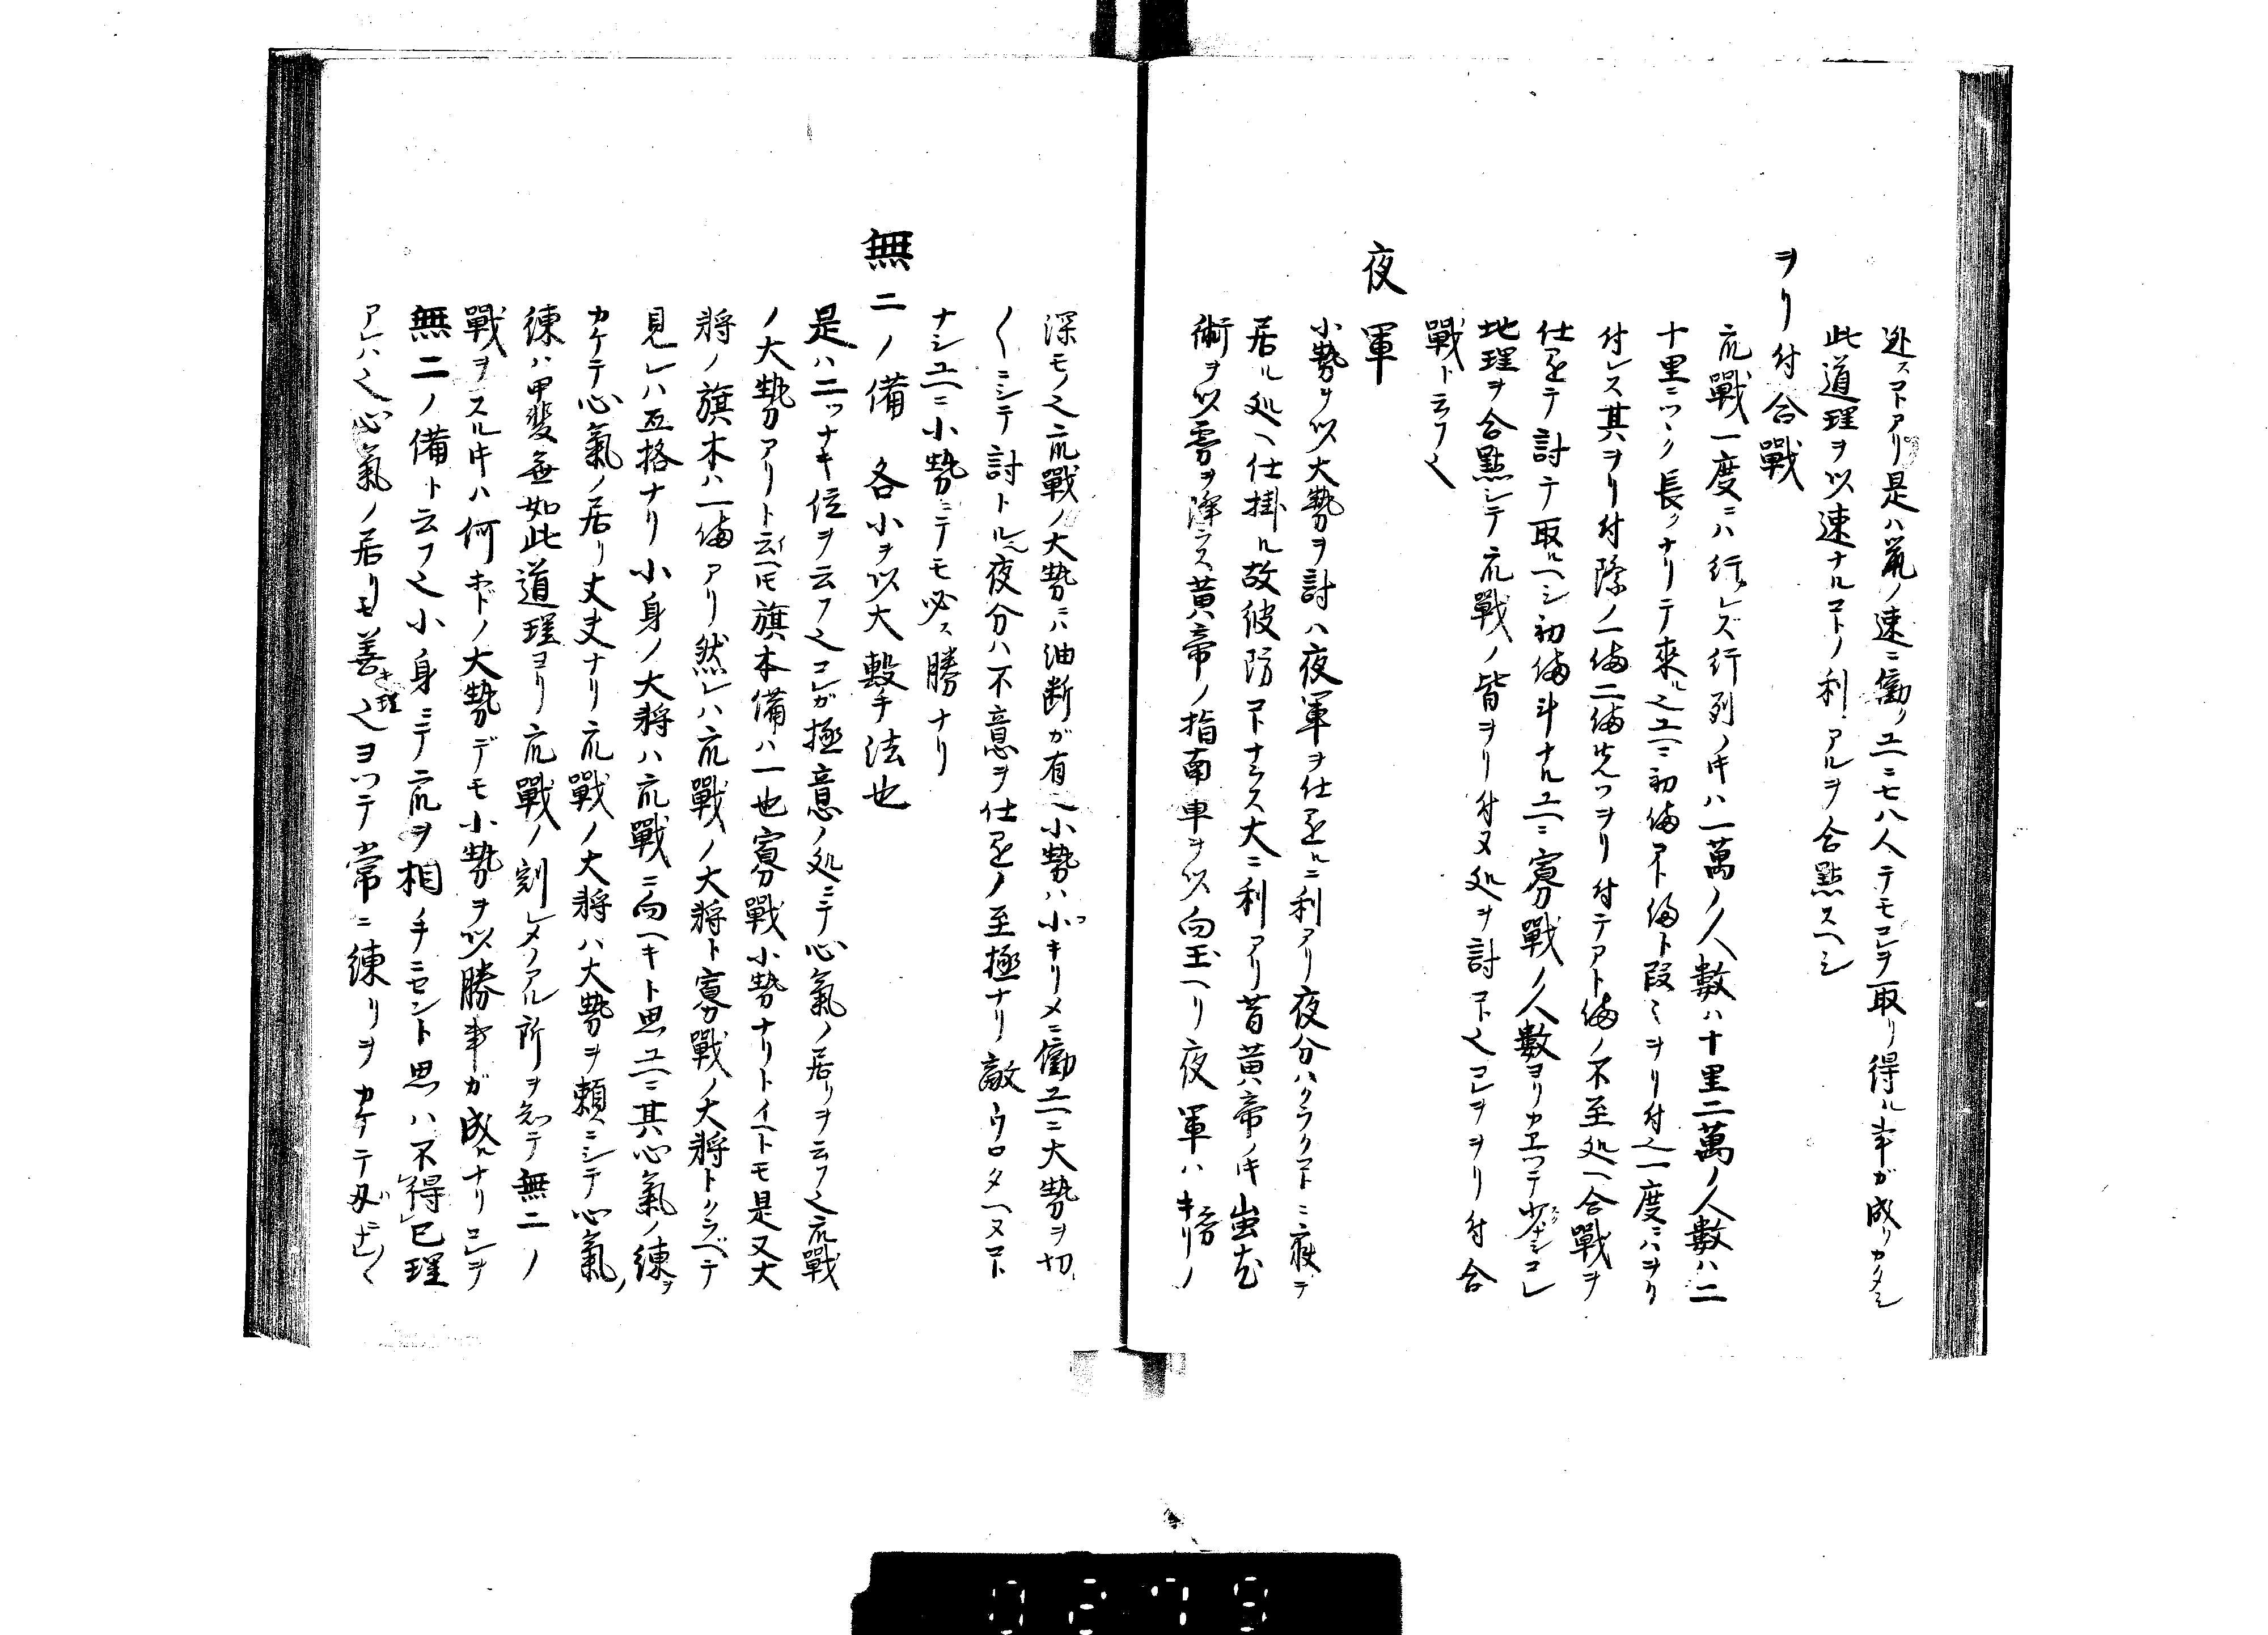 迯スヿアリ是ハ鼠ノ速ニ働クユヘニ七八人ニテモコレヲ取リ得ル事ガ成リカタシ
此道理ヲ以速ナルコトノ利アルヲ合點スヘシ
ヲリ付合戰
亢戰一度ニハ行レズ行列ノ時ハ一萬ノ人数ハ十里二萬ノ人数ハ二
十里ニツヽク長クナリテ來ル之ユヘニ初備アト備ト段ミヲリ付之一度ニハヲリ
付レス其ヲリ付際ノ一備二備先ツヲリ付テアト備ノ不至処ヘ合戰ヲ
仕運テ討テ取ルヘシ初備斗ナルユヘニ寡戰ノ人數ヨリカヱツテ少ナシコレ
地理ヲ合點シテ亢戰ノ皆ヲリ付ヌ処ヲ討ヿ之コレヲヲリ付合
戰ト云フ之
夜軍
小勢ヲ以大勢ヲ討ハ夜軍ヲ仕運ルニ利アリ夜分ハクラクヿニ寢テ
居ル処ヘ仕掛ル故彼防ヿナラス大ニ利アリ昔黄帝ノ時蚩尤
術ヲ以霧ヲ降ラス黄帝ノ指南車ヲ以向玉ヘリ夜軍ハキリノ
深モノ之亢戰ノ大勢ニハ油断ガ有ヘ小勢ハ小キリメニ働ユヘニ大勢ヲ切
〱ニシテ討トル夜分ハ不意ヲ仕運ノ至極ナリ敵ウロタヘヌコト
ナシユヘニ小勢ニテモ必ス勝ナリ
無二ノ備 各小ヲ以大撃手法也
是ハ二ツナキ位ヲ云フ之コレガ極意ノ処ニテ心氣ノ居リヲ云フ之亢戰
ノ大勢アリト云ヘトモ旗本備ハ一也寡戰小勢ナリトイヘトモ是又大
將ノ旗本ハ一備アリ然レハ亢戰ノ大將ト寡戰ノ大將トクラベテ
見レハ互格ナリ小身ノ大將ハ亢戰ニ向ヘキト思ユヘニ其心氣ノ練ヲ
カケテ心氣ノ居リ丈夫ナリ亢戰ノ大將ハ大勢ヲ頼ニシテ心氣ノ
練ハ甲斐無如此道理ヨリ亢戰ノ刻シメノアル所ヲ知テ無二ノ
戰ヲスル時ハ何ホドノ大勢デモ小勢ヲ以勝事ガ成ルナリコレヲ
無二ノ備ト云フ之小身ニテ亢ヲ相手ニセント思ハ不得已理
アレハ之心氣ノ居リモ善キ理之ヨツテ常ニ練リヲカケテ